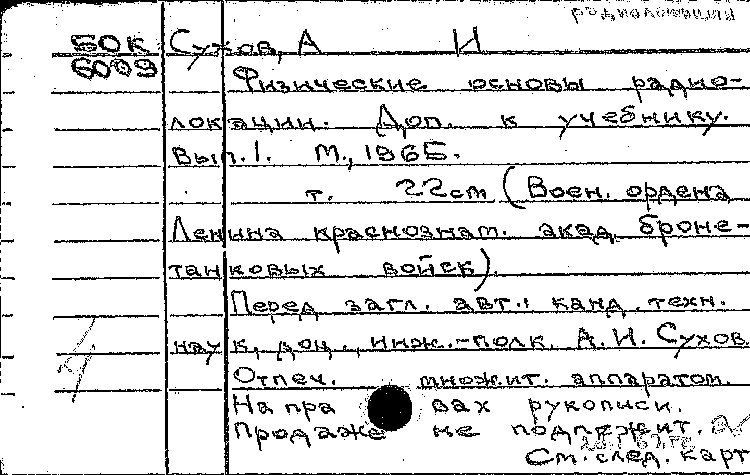 радиолокация
БОК Сухов, А И
6009
Физические основы радио-
локации. Доп. к учебнику.
Вып.1. М., 1965.
т. 22см (Воен. ордена
Ленина краснознам. акад. броне-
танковых войск).
Перед загл. авт.: канд. техн.
наук, доц., инж.-полк. А.И. Сухов.
Отпеч. множит. аппаратом.
На правах рукописи.
Продаже не подлежит.
См. след. карт